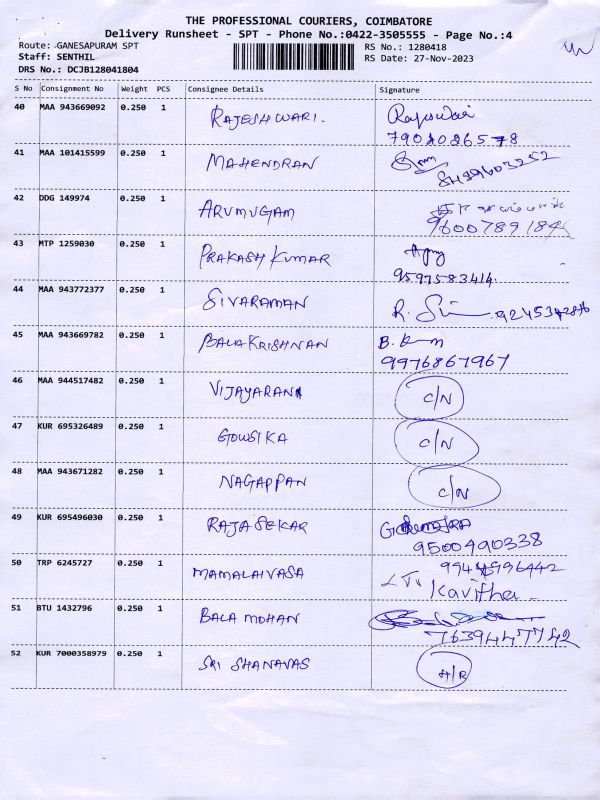 THE PROFESSIONAL COURIERS, COIMBATORE
Delivery Runsheet - SPT - Phone No.:0422-3505555 - Page No.:4
Route: GANESAPURAM SPT RS No.: 1280418
Staff: SENTHIL RS Date: 27-Nov-2023
DRS No.: DCJB128041804
S No Consignment No Weight PCS Consignee Details Signature
40 MAA 943669092 0.250 1 RAJESHWARI. Rajeswari
41 MAA 101415599 0.250 1 MAHENDRAN
42 DDG 149974 0.250 1 ARUMUGAM
9600789184
43 MTP 1259030 0.250 1 PRAKASH KUMAR
9597583414.
44 MAA 943772377 0.250 1 SIVARAMAN
45 MAA 943669782 0.250 1 BALAKRISHNAN
9976867967
46 MAA 944517482 0.250 1 VIJAYARANI C/N
47 KUR 695326489 0.250 1 GOWSIKA C/N
48 MAA 943671282 0.250 1 NAGAPPAN C/N
49 KUR 695496030 0.250 1 RAJA SEKAR
9500490338
50 TRP 6245727 0.250 1 MAMALAIVASA
Kavitha
51 BTU 1432796 0.250 1 BALA MOHAN
7639447742
52 KUR 7000358979 0.250 1 SRI SHANAVAS A/R